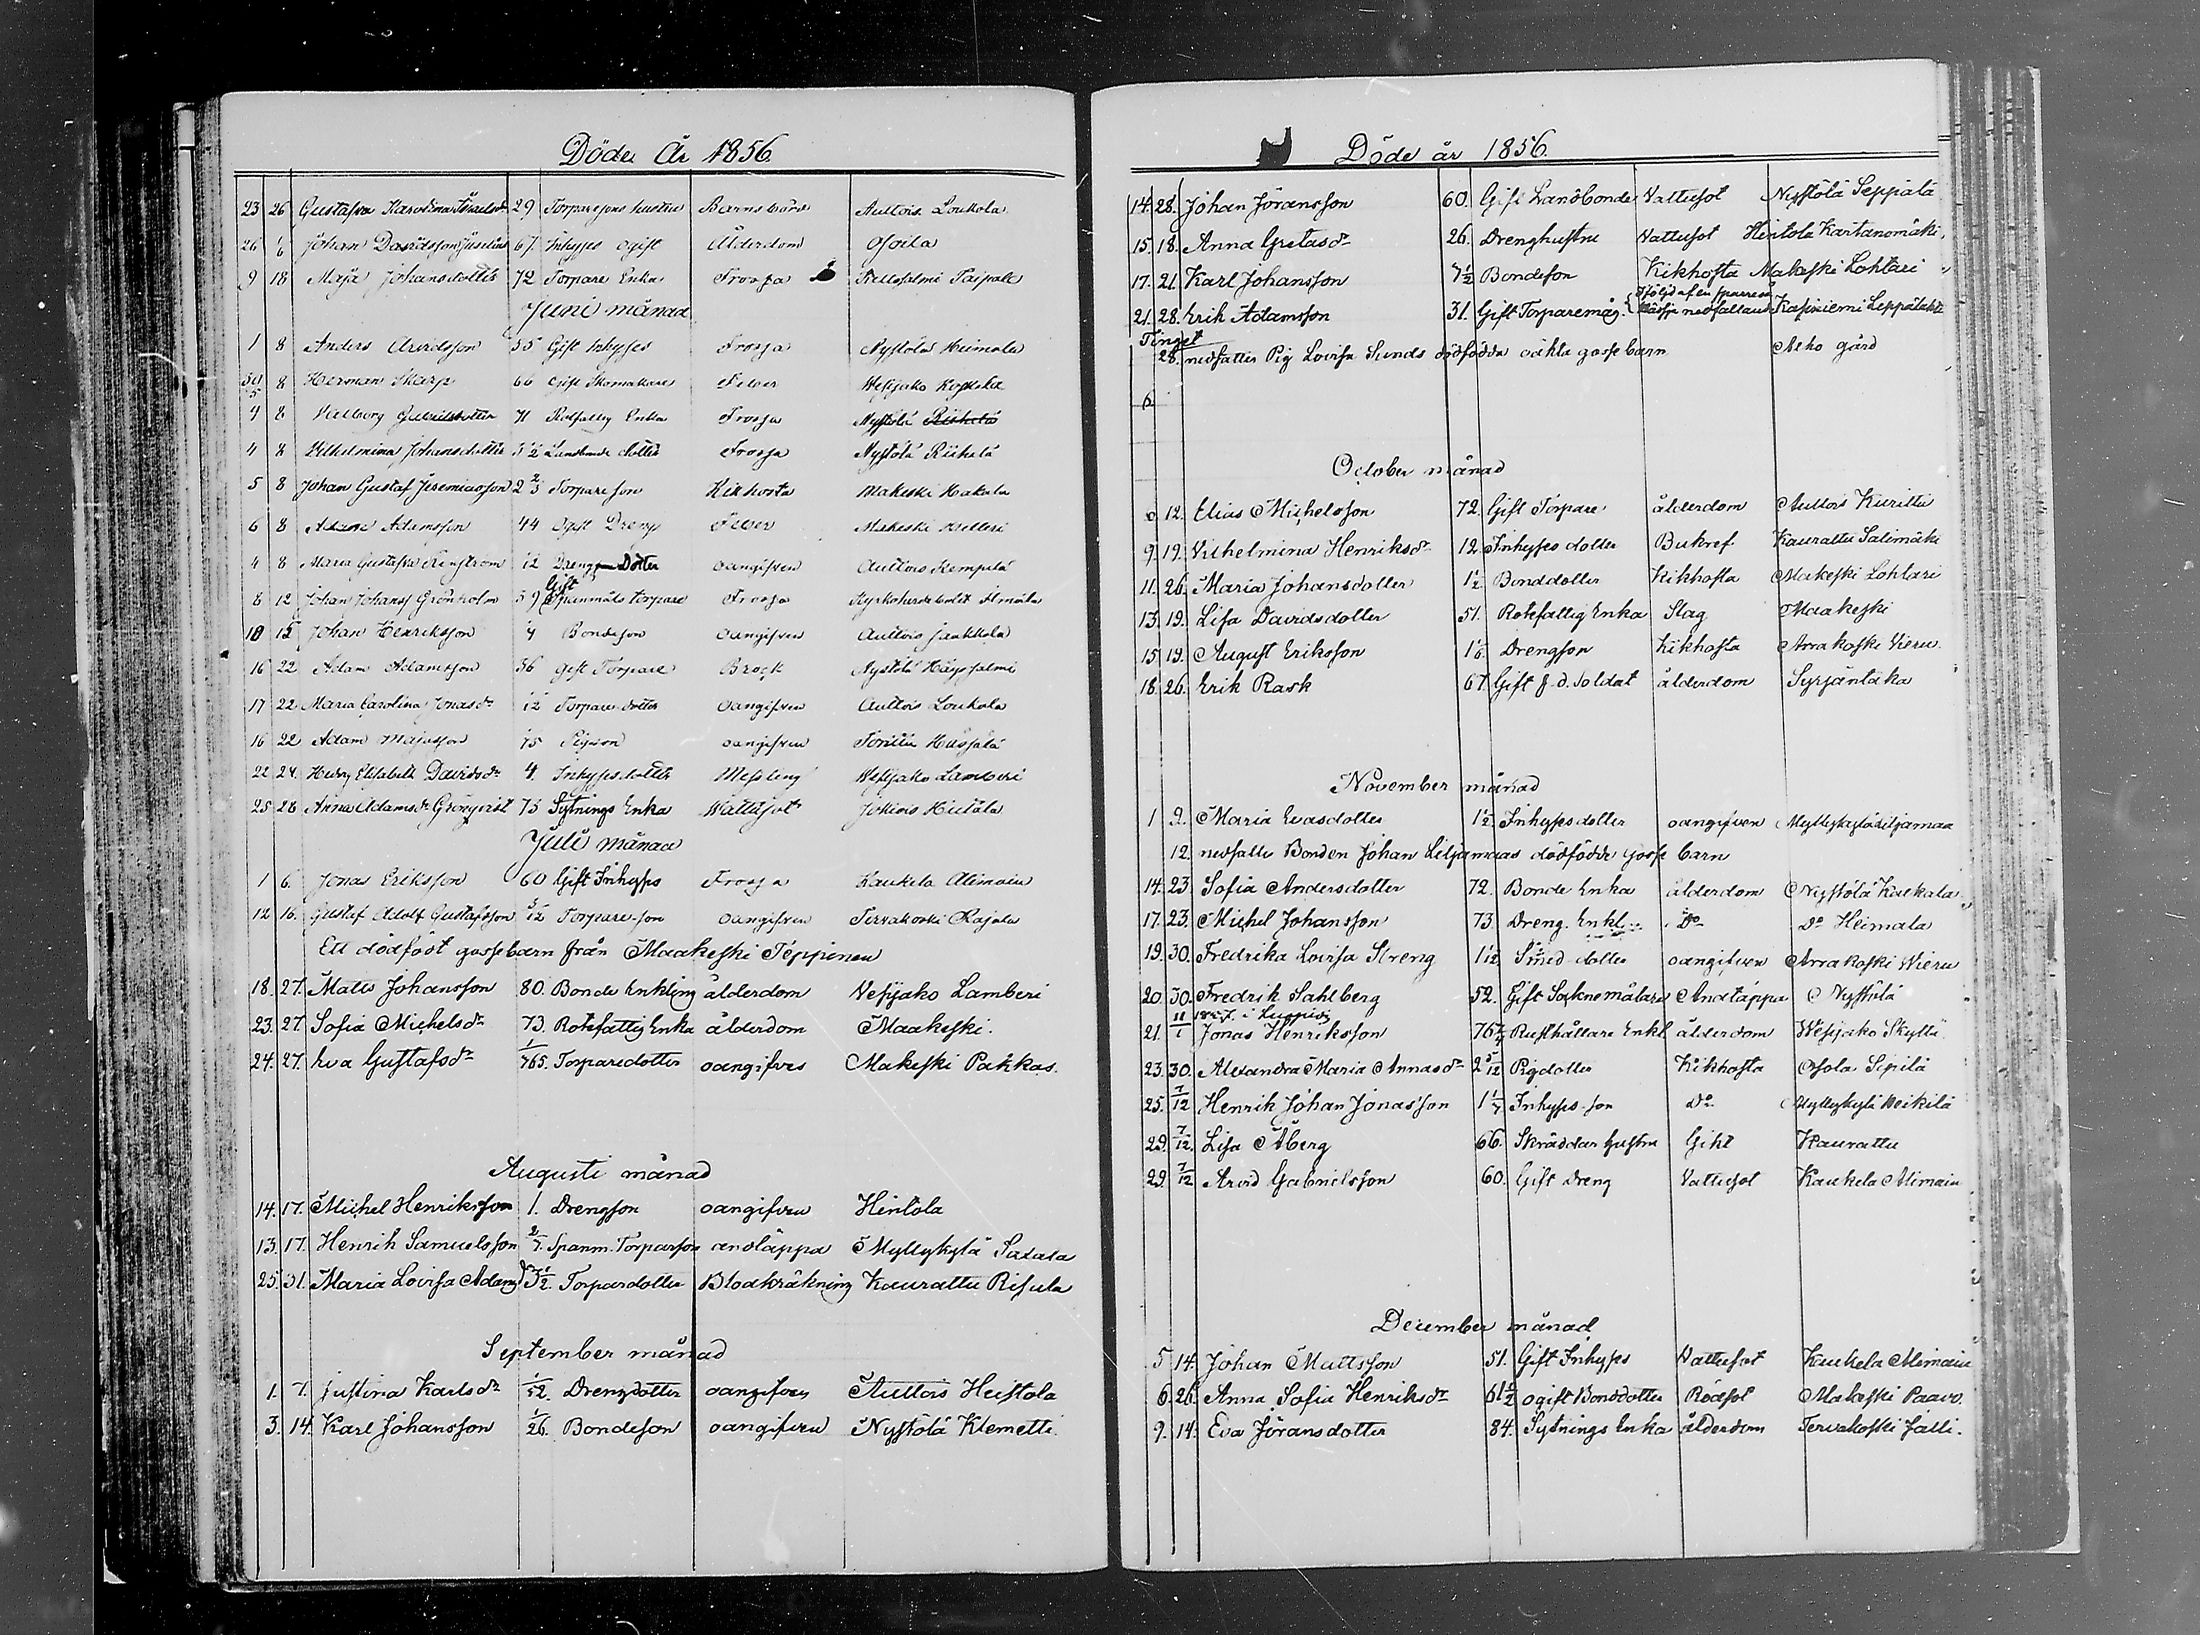 Döde År 1856.
23 26 Gustafva Karolina Israelsdr 29 Torparesons hustru Barnsbörd Auttois Loukola
26 1/6 Johan Davidsson Juselius 67 Inhyses ogift Ålderdom Osoila
9 18 Maja Johansdotter 72 Torpare Enka Frossa Kellosalmi Taipale
Juni månad
1 8 Anders Arvidsson 55 Gift Inhyses Frossa Nystölä Heimala
30/5 8 Herman Skarp 66 Gift Skomakare Feber Wesijako
4 8 Valborg 71 Rotfattig Enka Frossa Nystölä
4 8 Vilhelmina Johansdotter 3 1/2 Landbonde dotter Frossa Nystölä Riihelä
5 8 Johan Gustaf Jeremiasson 2 2/3 Torpareson Kikhosta Makeski Hakala
6 8 Adamsson 44 Ogift Dreng Feber Makeski Kelleri
4 8 Maria Gustafva 1/12 Dreng Dotter oangifven Auttois Kempilä
8 12 Johan Johanss Grönholm 59 Gift Spanmåls torpare Frossa
10 15 Johan Henriksson 1/4 Bondeson oangifven Auttois Jaakkola
16 22 Adam Adamsson 36 gift Torpare Brock Nystölä Häyssalmi
17 22 Maria Carolina Jonasdr 1/12 Torpare dotter oangifven Auttois Loukola
16 22 Adam Majasson 1/75 Pigson oangifven Torittu
22 24 Hedvig Elisabeth Davidsdr 4 Inhyses dotter Messling Wesijako Lamberi
25 28 Anna Adamsdr Grönqvist 75 Sytnings Enka Wattusot Jokiois Hietala
Juli månad
1 6. Jonas Eriksson 60 Gift Inhyses Frossa Kaukela Alimain
12 16. Gustaf Adolf Gustafsson 5/12 Torpare son oangifven Tervakoski Rajala
Ett dödfödt gossebarn från Maakeski Teppinen
18. 27. Matts Johansson 80. Bonde Enkling ålderdom Vesijako Lamberi
23. 27. Sofia Michelsdr 73. Rotefattig Enka ålderdom Maakeski.
24. 27. Eva Gustafsdr 1/365. Torparedotter oangifves Makeski Pakkas.
Augusti månad
14. 17. Michel Henriksson 1. Drengson oangifven Hintola
13. 17. Henrik Samuelsson 2/7. Spanm. Torparson andtäppa Myllykylä Satala
25. 31. Maria Lovisa Adamsdr 3 1/2. Torpardotter Blodkräkning Kaurattu Risula
September månad
1. 7. Justina Karlsdr 1/52. Drengdotter oangifven Auttois Heistola
3. 14. Karl Johansson 1/26. Bondeson oangifven Nystölä Klemetti.
Döde år 1856.
14. 28. Johan Jöransson 60. Gift Landbonde Vattusot Nystölä Seppälä
15. 18. Anna Gretasdr 26. Drenghustru Vattusot Hintola Kartanomäki.
17. 21. Karl Johansson 7 1/2 Bondeson Kikhosta Makeski Lohtari
21. 28. Erik Adamsson 31. Gift Torparemåg. följd af en nedfallande Kasiniemi Leppälahti
Tinget
28. nedsattes Pig Lovisa Sunds dödfödda oäkta gossebarn Arho gård
6.
October månad
12. Elias Michelsson 72. Gift Torpare ålderdom Auttois Kurittu
9. 19. Vilhelmina Henriksdr 12. Inhyses dotter Bukref Kaurattu Salimäki
11. 26. Maria Johansdotter 1 1/2 Bonddotter Kikhosta Makeski Lohtari
13. 19. Lisa Davidsdotter 51. Rotefattig Enka Slag Maakeski
15. 19. August Eriksson 1 1/6. Drengson Kikhosta Arrakoski Vieru.
18. 26. Erik Rask 67. Gift f.d. Soldat ålderdom Syrjäntaka
November månad
1 9. Maria Evasdotter 1 1/2. Inhysesdotter oangifven Myllykylä Liljamaa
12. nedsattes Bonden Johan Liljamaas dödfödde gosse barn
14. 23. Sofia Andersdotter 72. Bonde Enka ålderdom Nystölä Kaukala
17. 23. Michel Johansson 73. Dreng. Enkl. Do Do Heimala
19. 30. Fredrika Lovisa Streng 1 1/12 Smed dotter oangifven Arrakoski Wieru
20. 30. Fredrik Sahlberg 52. Gift Soknemålare Andtäppa Nystölä
21. 11/1 1857 i Luopiois Jonas Henriksson 76 1/2 Rusthållare Enkl ålderdom Wesijako Skyttä.
23. 30. Alexandra Maria Annasdr 2 5/12 Pigdotter Kikhosta Osola Sipilä
25. 7/12 Henrik Johan Jonasson 1 1/7 Inhyses son Do Myllykylä Heikilä
29. 7/12. Lisa Åberg 66. Skräddar hustru Gikt Kaurattu
29. 7/12 Arvid Gabrielsson 60. Gift dreng Vattusot Kaukela Alimain
December månad
5 14. Johan Mattsson 51. Gift Inhyses Vattusot Kaukela Alimain
6. 26. Anna Sofia Henriksdr 61 1/2 ogift Bonddotter Rödsot Makeski Paavo.
9. 14. Eva Jöransdotter 84. Sytnings Enka ålderdom Tervakoski Jalli.